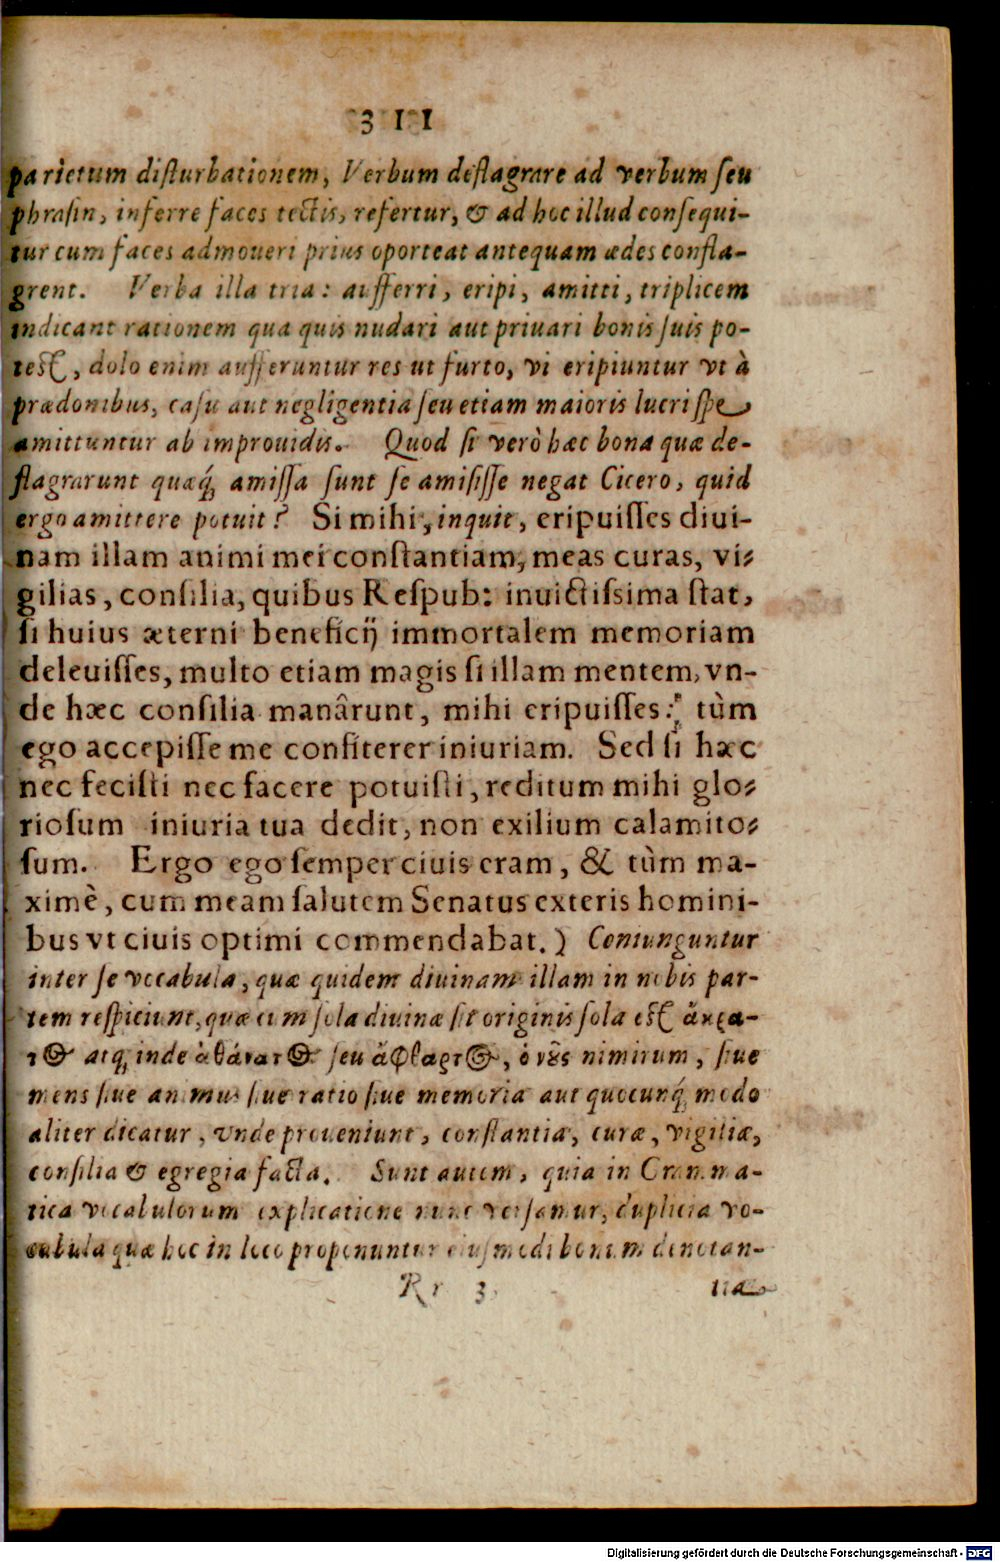 311
parietum disturbationem, Verbum deflagrare ad verbum seu
phrasin, inferre faces tectis, refertur, & ad hoc illud consequi-
tur cum faces admoueri prius oporteat antequam ædes confla-
grent. Verba illa tria: aufferri, eripi, amitti, triplicem
indicant rationem qua quis nudari aut priuari bonis suis po-
test, dolo enim aufferuntur res ut furto, vi eripiuntur vt à
prædonibus, casu aut negligentia seu etiam maioris lucri spe
amittuntur ab improuidis. Quod si verò hæc bona quæ de-
flagrarunt quæq́; amissa sunt se amisisse negat Cicero, quid
ergo amittere potuit? Si mihi, inquit, eripuisses diui-
nam illam animi mei constantiam, meas curas, vi-
gilias, consilia, quibus Respub: inuictissima stat,
si huius æterni beneficij immortalem memoriam
deleuisses, multo etiam magis si illam mentem, vn-
de hæc consilia manârunt, mihi eripuisses: tùm
ego accepisse me confiterer iniuriam. Sed si hæc
nec fecisti nec facere potuisti, reditum mihi glo-
riosum iniuria tua dedit, non exilium calamito-
sum. Ergo ego semper ciuis eram, & tùm ma-
ximè, cum meam salutem Senatus exteris homini-
bus vt ciuis optimi commendabat.) Coniunguntur
inter se vocabula, quæ quidem diuinam illam in nobis par-
tem respiciunt, quæ cum sola diuinæ sit originis sola est ἄκρα-
τος atq; inde ἀθάνατος seu ἄφθαρτος, ὁ νοῦς nimirum, siue
mens siue animus siue ratio siue memoria aut quocunq́; modo
aliter dicatur, vnde proueniunt, constantia, curæ, vigiliæ,
consilia & egregia facta. Sunt autem, quia in Gramma-
tica vocabulorum explicatione nunc versamur, duplicia vo-
cabula quæ hoc in loco proponuntur eiusmodi bonum denotan-
Rr 3 tia